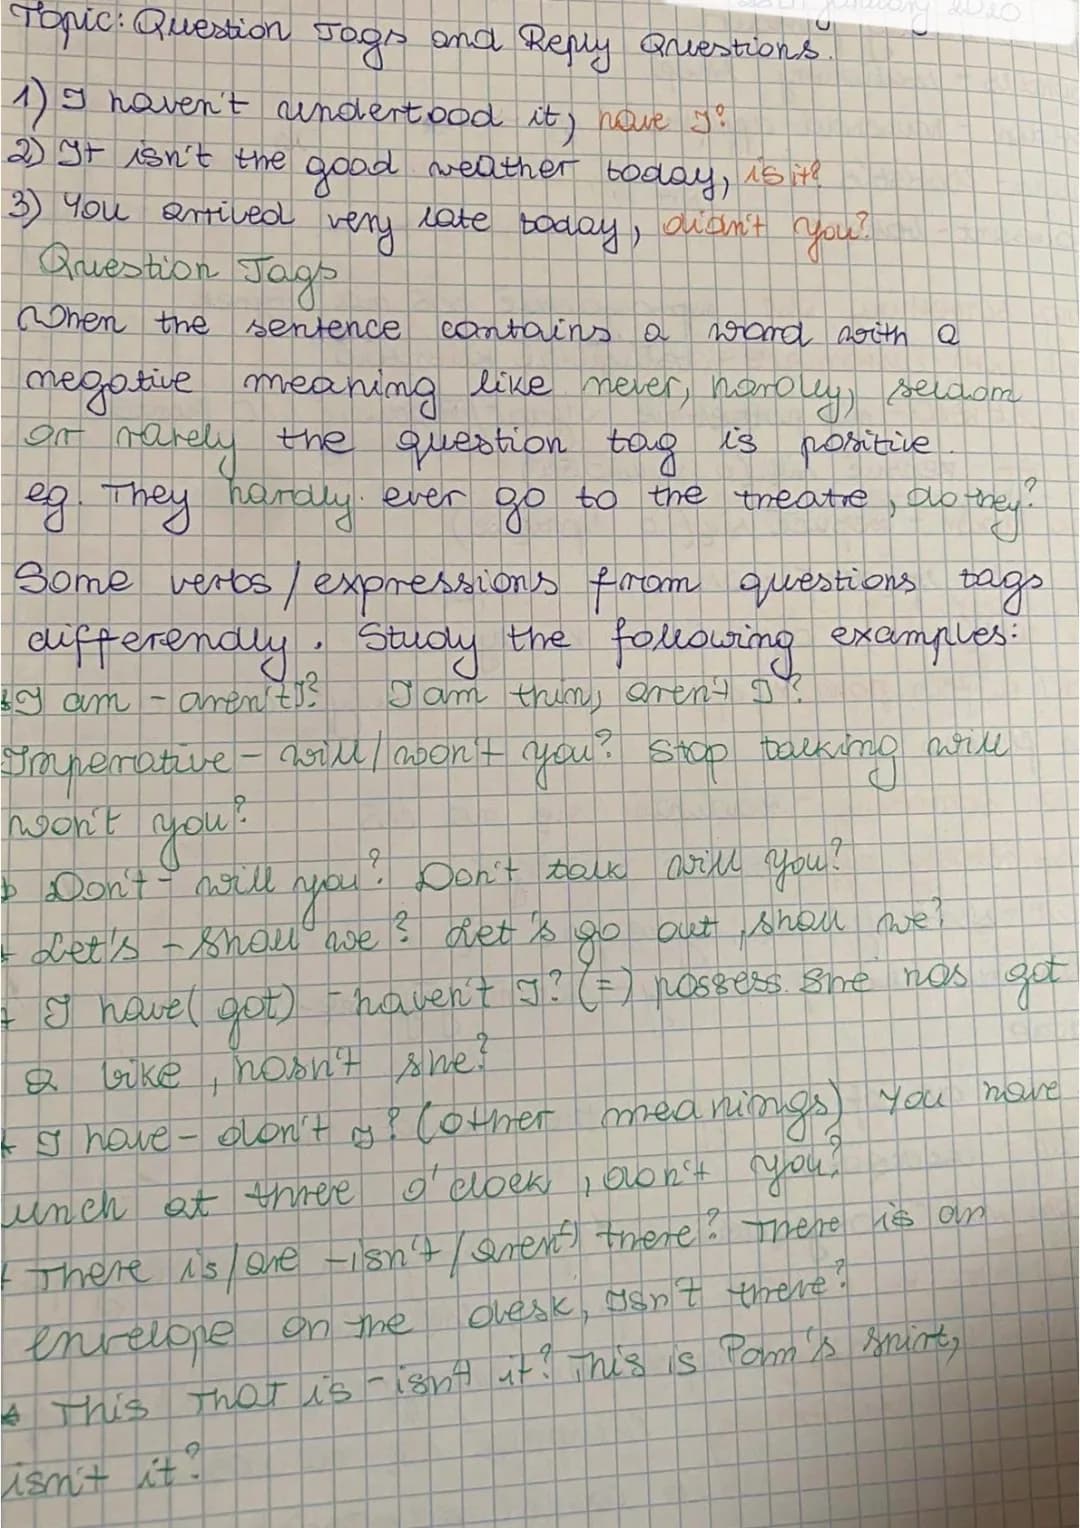 January 2020
Topic: Question Tags and Reply Questions.
1) I haven't undertood it, have I?
2) It isn't the good weather today, is it?
3) You arrived very late today, didn't you?
Question Tags
When the sentence contains a word with a
negative meaning like never, hardly, seldom
or rarely the question tag is positive.
eg. They hardly ever go to the theatre, do they?
Some verbs/expressions from questions tags
differendly. Study the following examples:
I am - aren't I? I am thin, aren't I?
Imperative - will/won't you? Stop talking will
won't you?
Don't - will you? Don't talk will you?
Let's - shall we? Let's go out, shall we?
I have (got) - haven't I? (=) possess. She has got
a bike, hasn't she?
I have - don't I? (other meanings) You have
lunch at three o'clock, don't you?
There is/are - isn't/aren't there? There is an
envelope on the desk, isn't there?
This That is - isn't it? This is Pam's shirt,
isn't it?